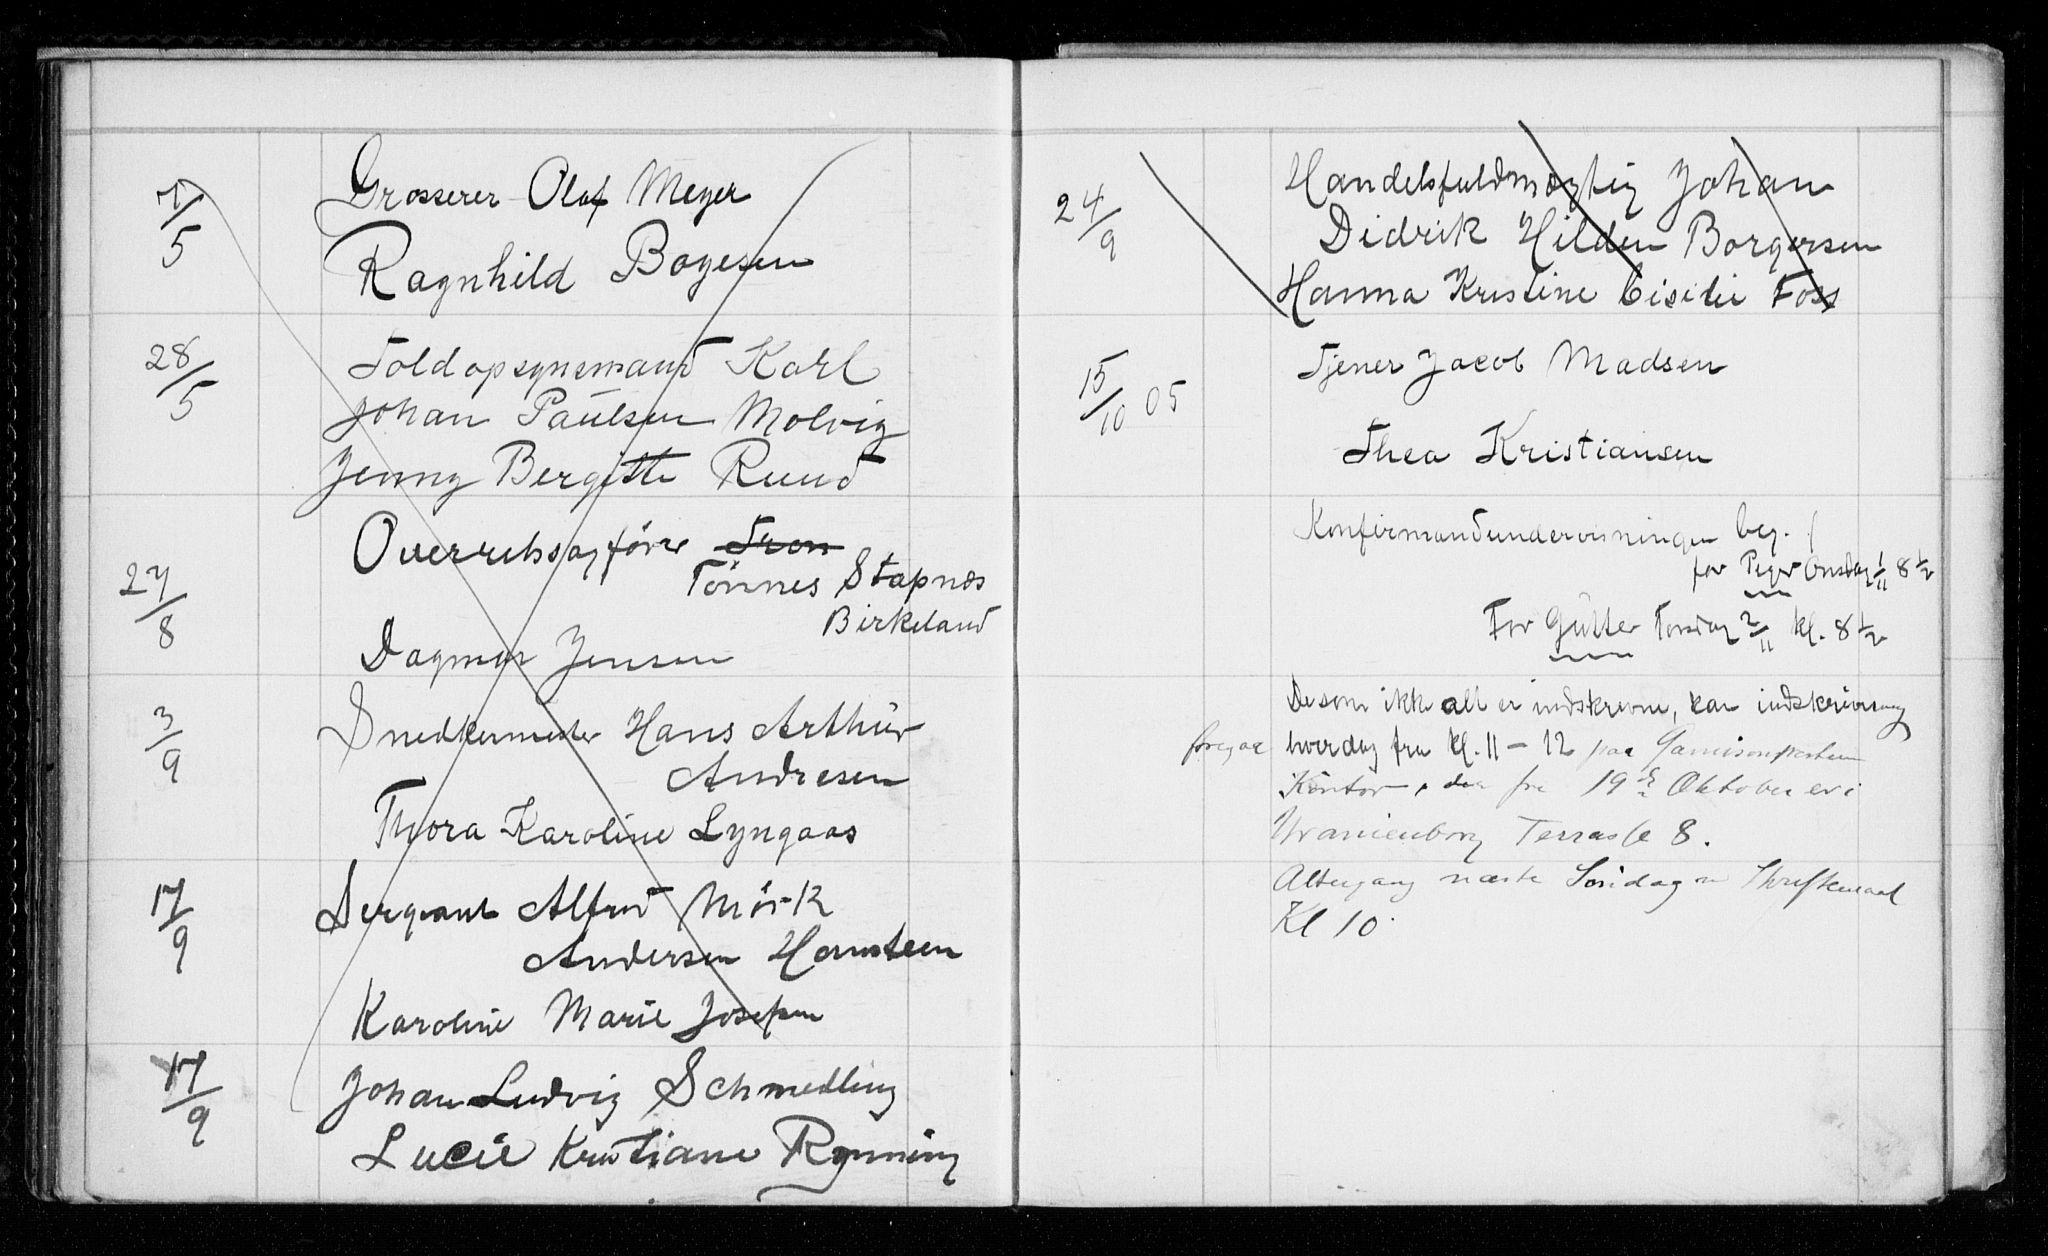 7/5 Grosserer Olaf Meyer
Ragnhild Boyesen
28/5 Toldopsynsmand Karl
Johan Paulsen Molvig
Jenny Bergitte Ruud
27/8 Overretssagförer Tron
Tönnes Stapnes
Birkeland
Dagmar Jensen
3/9 Snedkermester Hans Arthur
Andresen
Thora Karoline Lyngaas
17/9 Sergeant Alfred Mörk
Andersen Hornsteen
Karoline Marie Josefsen
17/9 Johan Ludvig Schmedling
Lucie Kristiane Rynning
24/9 Handelsfuldmægtig Johan
Didrik Hilden Borgersen
Hanna Kristine Foss
15/10 05 Tjener Jacob Madsen
Thea Kristiansen
Konfirmandundervisningen beg.
for Piger Onsdag 1/11 8 1/2
For Gutter Torsdag 2/11 kl. 8 1/2
De som ikke alt er indskrevne, kan indskrivning
foregaa hverdag fra kl. 11 - 12 paa Garnisonspræsten
Kontor, der fra 19de Oktober er i
Uranienborg Terrasse 8.
Altergang næste Söndag m Skriftemaal
Kl 10.